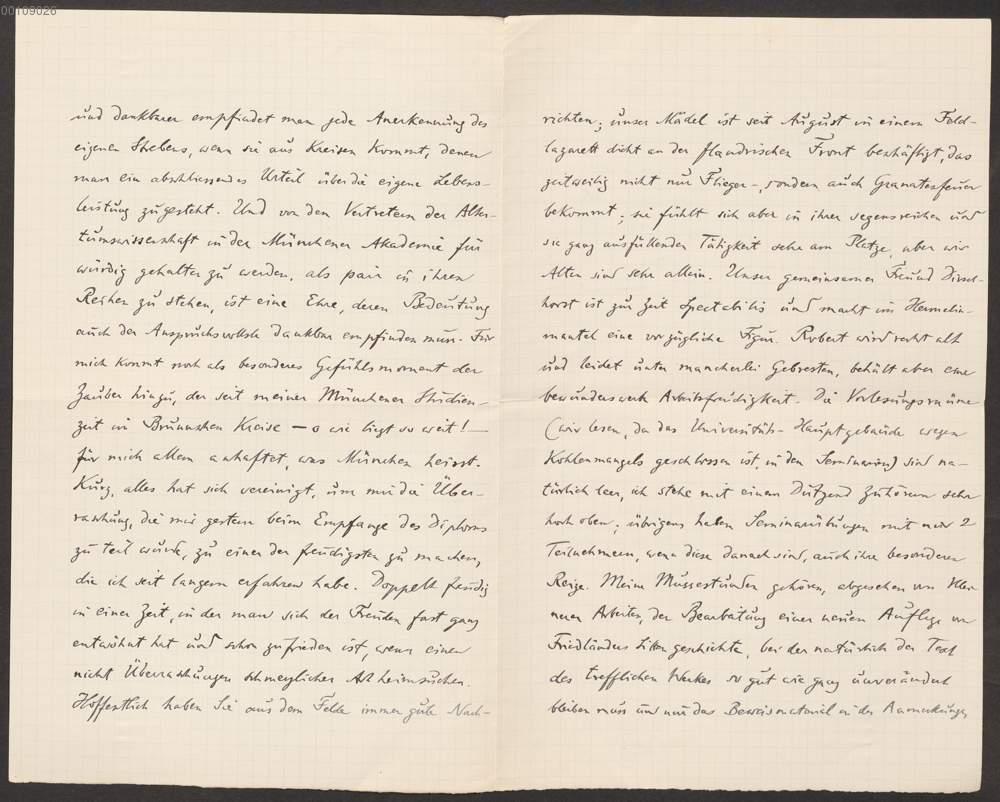 00109026
und dankbarer empfindet man jede Anerkennung des
eigenen Strebens, wenn sie aus Kreisen kommt, denen
man ein abschliessendes Urteil über die eigene Lebens-
leistung zugesteht. Und von den Vertretern der Alter-
tumswissenschaft in der Münchener Akademie für
würdig gehalten zu werden, als pair in ihren
Reihen zu stehen, ist eine Ehre, deren Bedeutung
auch der Anspruchsvollste dankbar empfinden muss. Für
mich kommt noch als besonderes Gefühlsmoment der
Zauber hinzu, der seit meiner Münchener Studien-
zeit in Brunnschen Kreise — o wie liegt so weit! —
für mich allem anhaftet, was München heisst.
Kurz, alles hat sich vereinigt, um mir die Über-
raschung, die mir gestern beim Empfange des Diploms
zu teil wurde, zu einer der freudigsten zu machen,
die ich seit langem erfahren habe. Doppelt freudig
in einer Zeit, in der man sich der Freuden fast ganz
entwöhnt hat und schon zufrieden ist, wenn einen
nicht Überraschungen schmerzlicher Art heimsuchen.
Hoffentlich haben Sie aus dem Felde immer gute Nach-
richten; unser Mädel ist seit August in einem Feld-
lazarett dicht an der flandrischen Front beschäftigt, das
zeitweilig nicht nur Flieger-, sondern auch Granatenfeuer
bekommt; sie fühlt sich aber in ihrer segensreichen und
sie ganz ausfüllenden Tätigkeit sehr am Platze, aber wir
Alten sind sehr allein. Unser gemeinsamer Freund Dissel-
horst ist zur Zeit Spectabilis und macht im Hermelin-
mantel eine vorzügliche Figur. Robert wird recht alt
und leidet unter mancherlei Gebresten, behält aber eine
bewundernswerte Arbeitsfreudigkeit. Die Vorlesungsräume
(wir lesen, da das Universitäts-Hauptgebäude wegen
Kohlenmangels geschlossen ist, in den Seminarien) sind na-
türlich leer, ich stehe mit einem Dutzend Zuhörern sehr
hoch oben; übrigens haben Seminarübungen mit nur 2
Teilnehmern, wenn diese danach sind, auch ihre besonderen
Reize. Meine Mussestunden gehören, abgesehen von klei-
neren Arbeiten, der Bearbeitung einer neuen Auflage von
Friedländers Sittengeschichte, bei der natürlich der Text
des trefflichen Werkes so gut wie ganz unverändert
bleiben muss und nur das Beweismaterial in den Anmerkungen